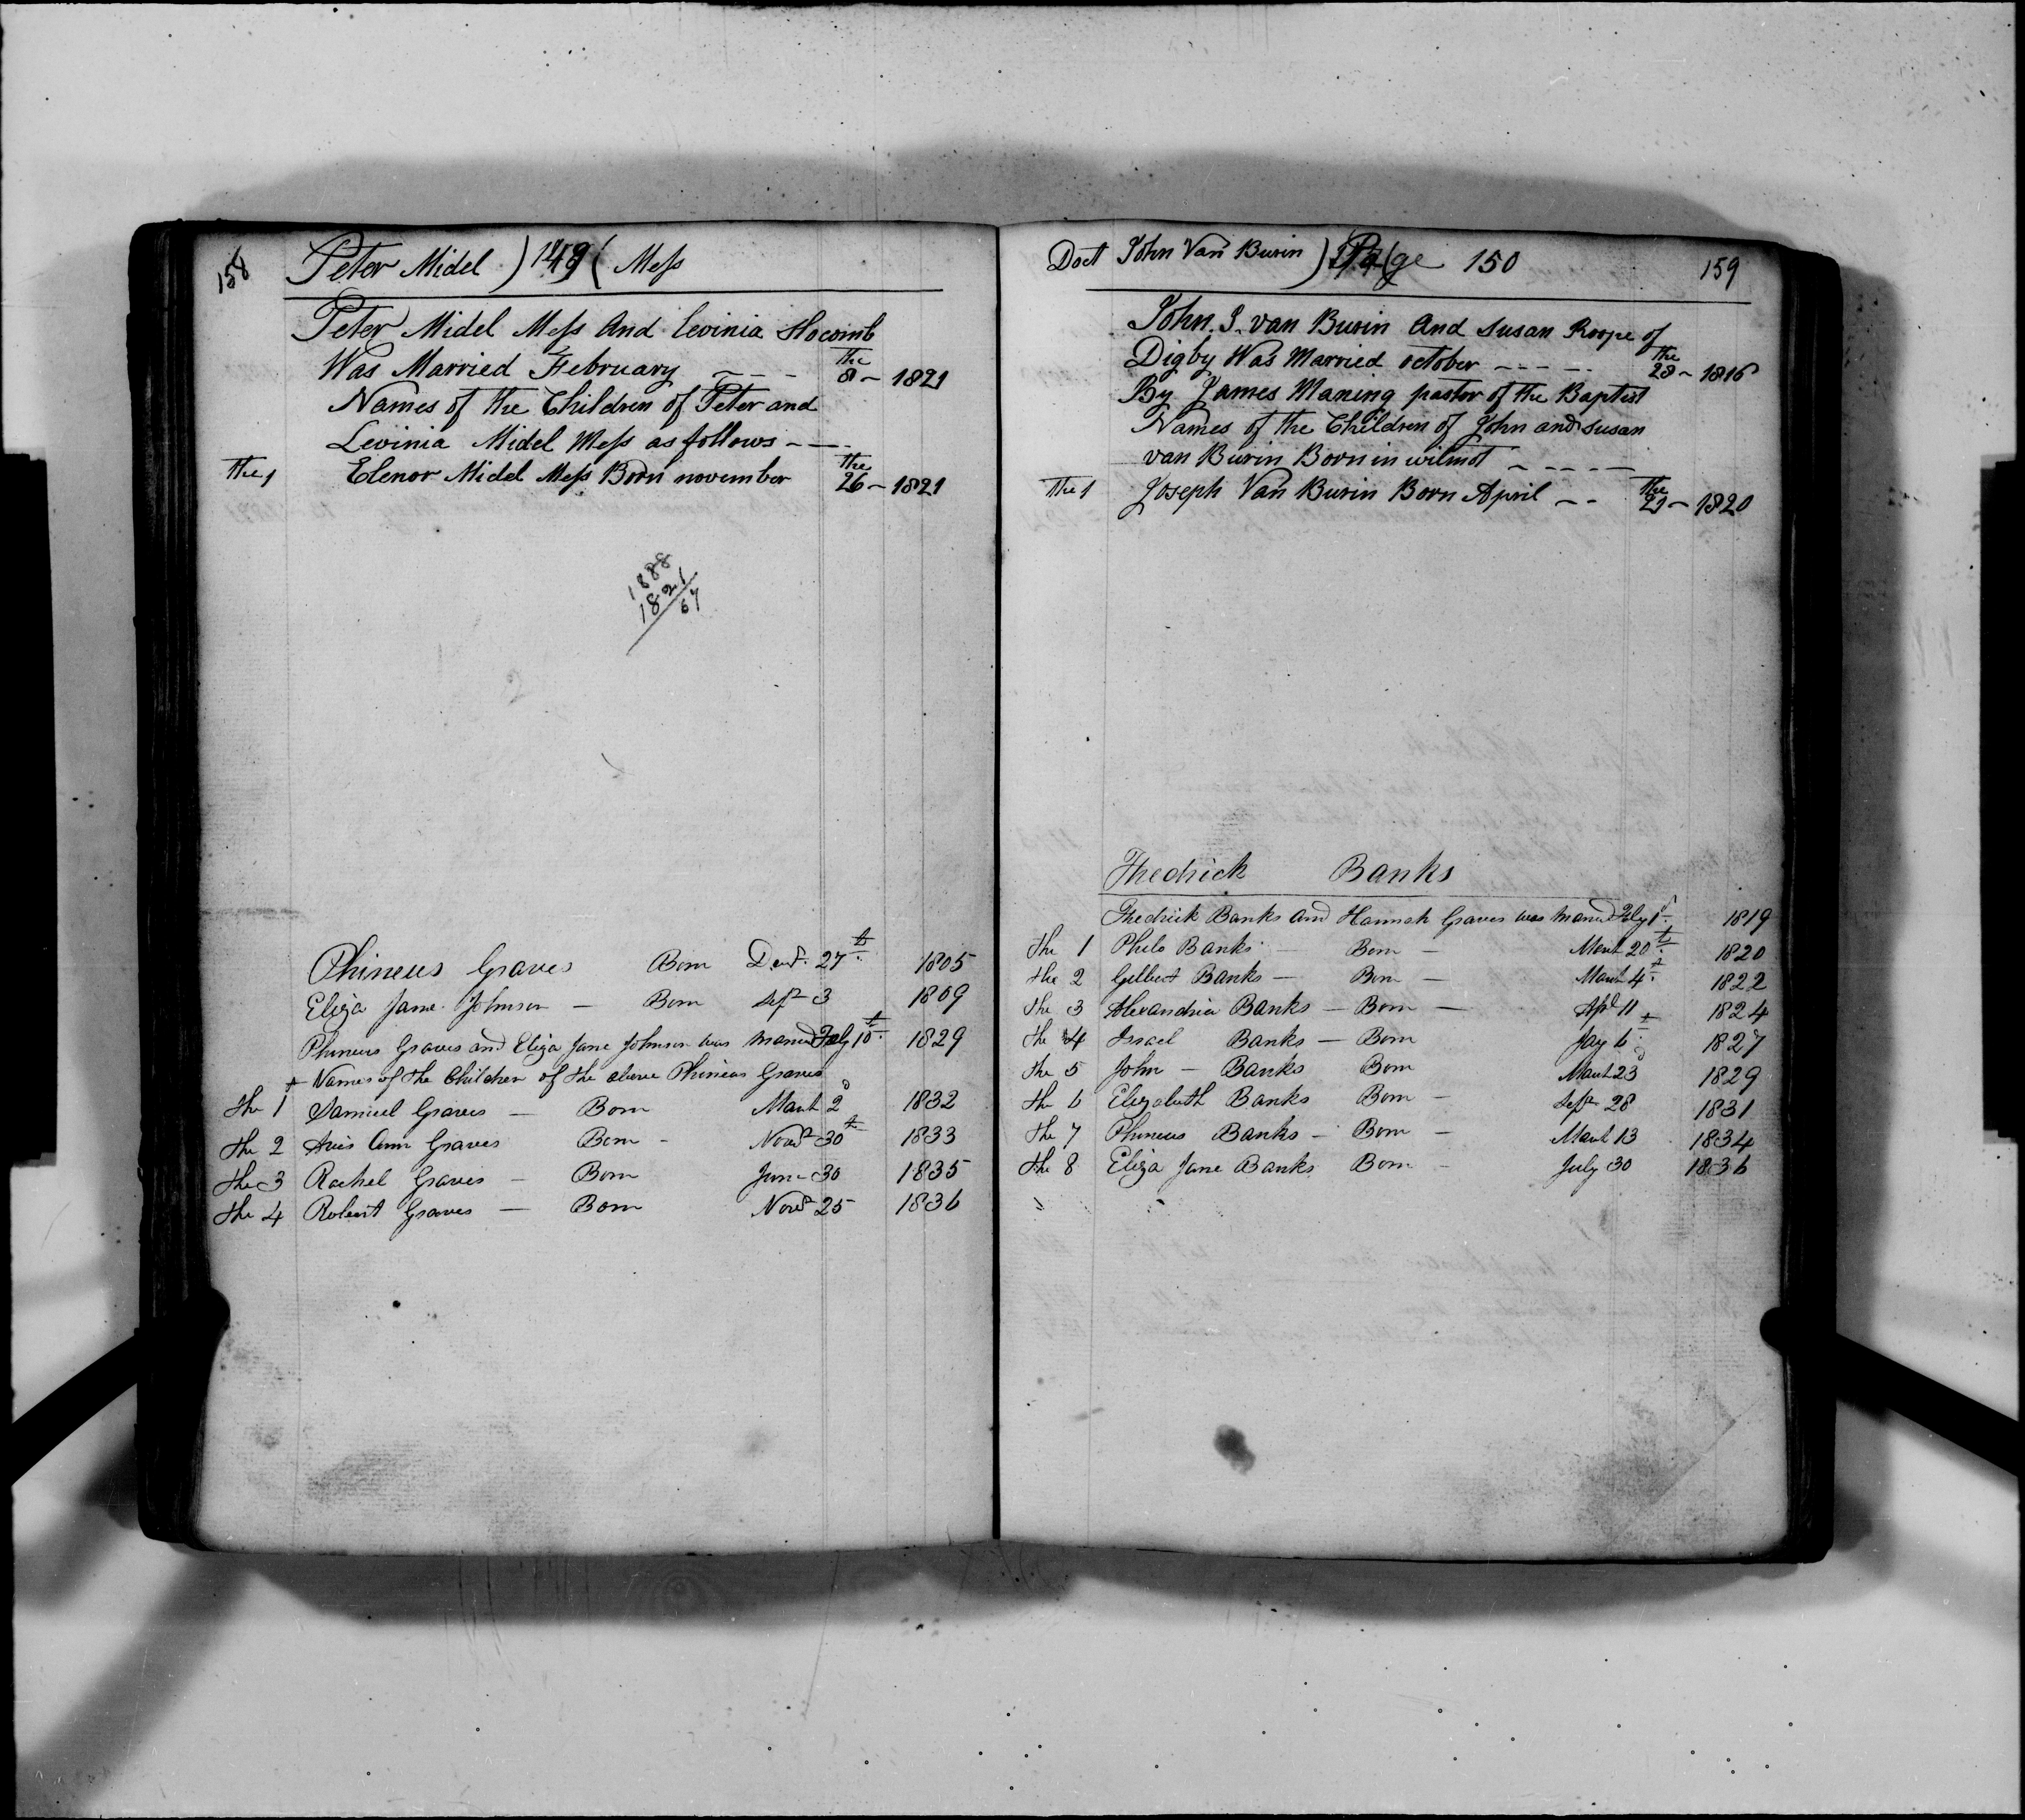 158
Peter Midel ) 149 ( Mess
Peter Midel Mess And Levinia Hocomb
Was Married February - - - the 8 - 1821
Names of the Children of Peter and
Levinia Midel Mess as follows - -
The 1 Elenor Midel Mess Born november the 26 - 1821
1888
1821
67
Phineus Graves Born Decr. 27th 1805
Eliza Jane Johnson - Born Sepr 3 1809
Phineus Graves and Eliza Jane Johnson was Married 10th 1829
Names of the Children of the above Phineas Graves
The 1 Samuel Graves - Born March 2d 1832
The 2 Avis Ann Graves Born - Novr 30th 1833
The 3 Rachel Graves - Born June 30 1835
The 4 Robert Graves - Born Novr 25 1836
Doct John Van Burin ) Page 150
159
John. S. van Burin And Susan Roope of
Digby Was Married october - - - - - the 28 - 1816
By James Maning pastor of the Baptist
Names of the Children of John and Susan
van Burin Born in wilmot - - - - -
The 1 Joseph Van Burin Born April - - the 21 - 1820
Fhedrick Banks
Fhedrick Banks and Hannah Graves was Married 1st 1819
The 1 Philo Banks - Born - March 20th 1820
The 2 Gilbert Banks - Born - March 4th 1822
The 3 Alexandria Banks - Born - Apl 11 1824
The 4 Israel Banks - Born Jay 6th 1827
The 5 John - Banks Born March 23d 1829
The 6 Elizabeth Banks Born - Sepr 28 1831
The 7 Phineus Banks - Born - March 13 1834
The 8 Eliza Jane Banks Born - July 30 1836